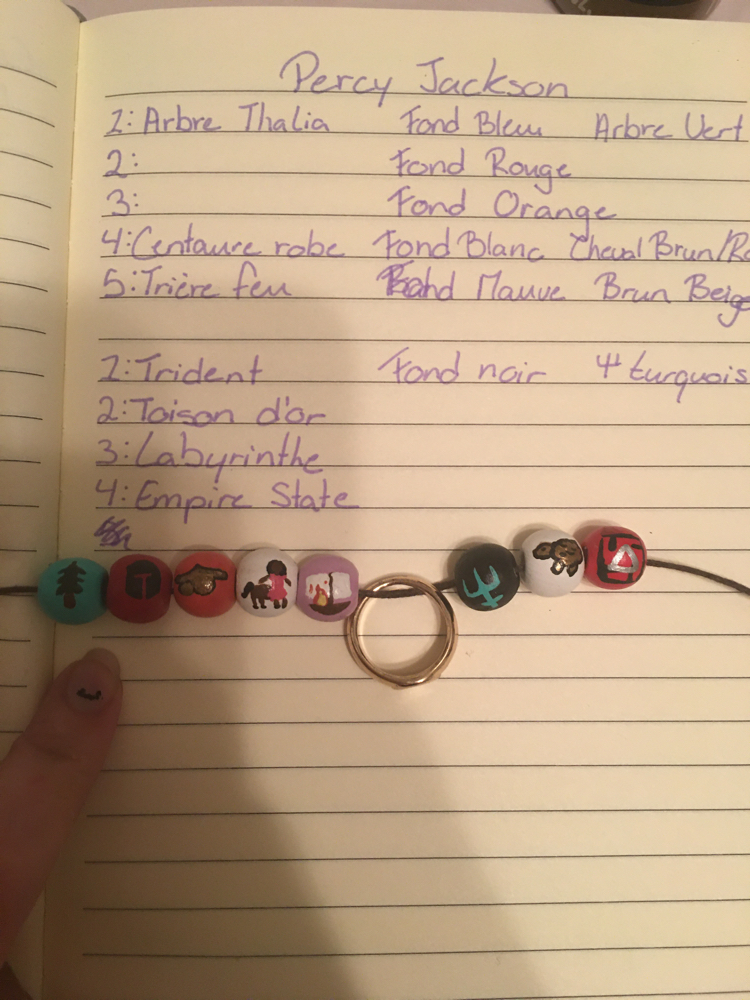 Percy Jackson
1: Arbre Thalia Fond Bleu Arbre Vert
2: Fond Rouge
3: Fond Orange
4: Centaure robe Fond Blanc Cheval Brun/Ro
5: Trière feu Fond Mauve Brun Beig
1: Trident Fond noir Ψ turquois
2: Toison d'or
3: Labyrinthe
4: Empire State